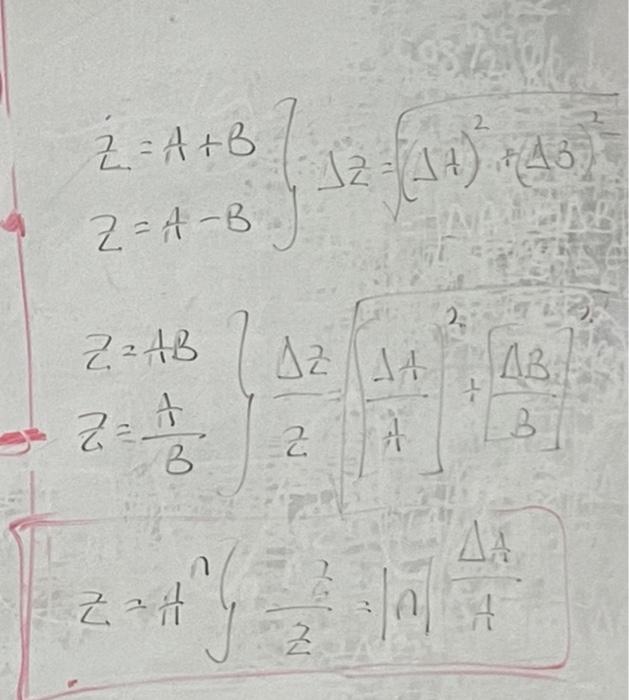 Z = A + B } ΔZ = √((ΔA)² + (ΔB)²)
Z = A − B
Z = AB } ΔZ/Z = √([ΔA/A]² + [ΔB/B]²)
Z = A/B
Z = Aⁿ } /Z = |n| ΔA/A